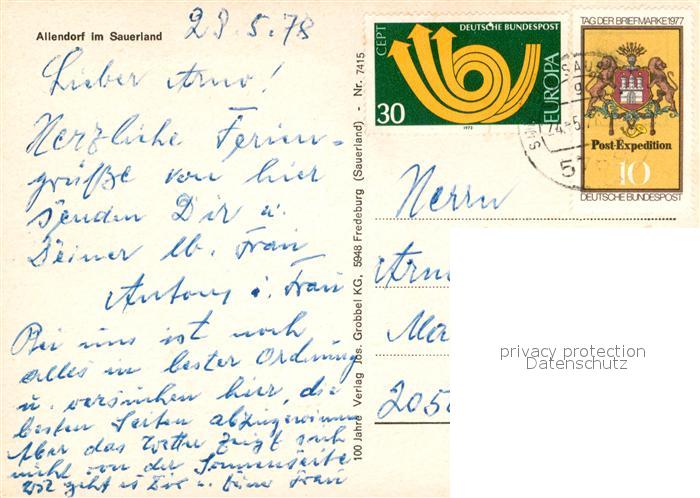 Allendorf im Sauerland
23.5.78
Lieber Arno!
Herzliche Ferien-
grüße von hier
senden Dir u.
Deiner lb. Frau
Antony u. Frau
Bei uns ist noch
alles in bester Ordnung
u. versuchen hier, die
besten Seiten abzugewinnen
Aber das Wetter zeigt sich
nicht von der Sonnenseite
geht es Dir u. Deine Frau
100 Jahre Verlag Jos. Grobbel KG, 5948 Fredeburg (Sauerland) - Nr. 7415
CEPT
DEUTSCHE BUNDESPOST
EUROPA
30
1973
TAG DER BRIEFMARKE 1977
Post-Expedition
10
DEUTSCHE BUNDESPOST
Herrn
Arn
Ma
205
privacy protection
Datenschutz